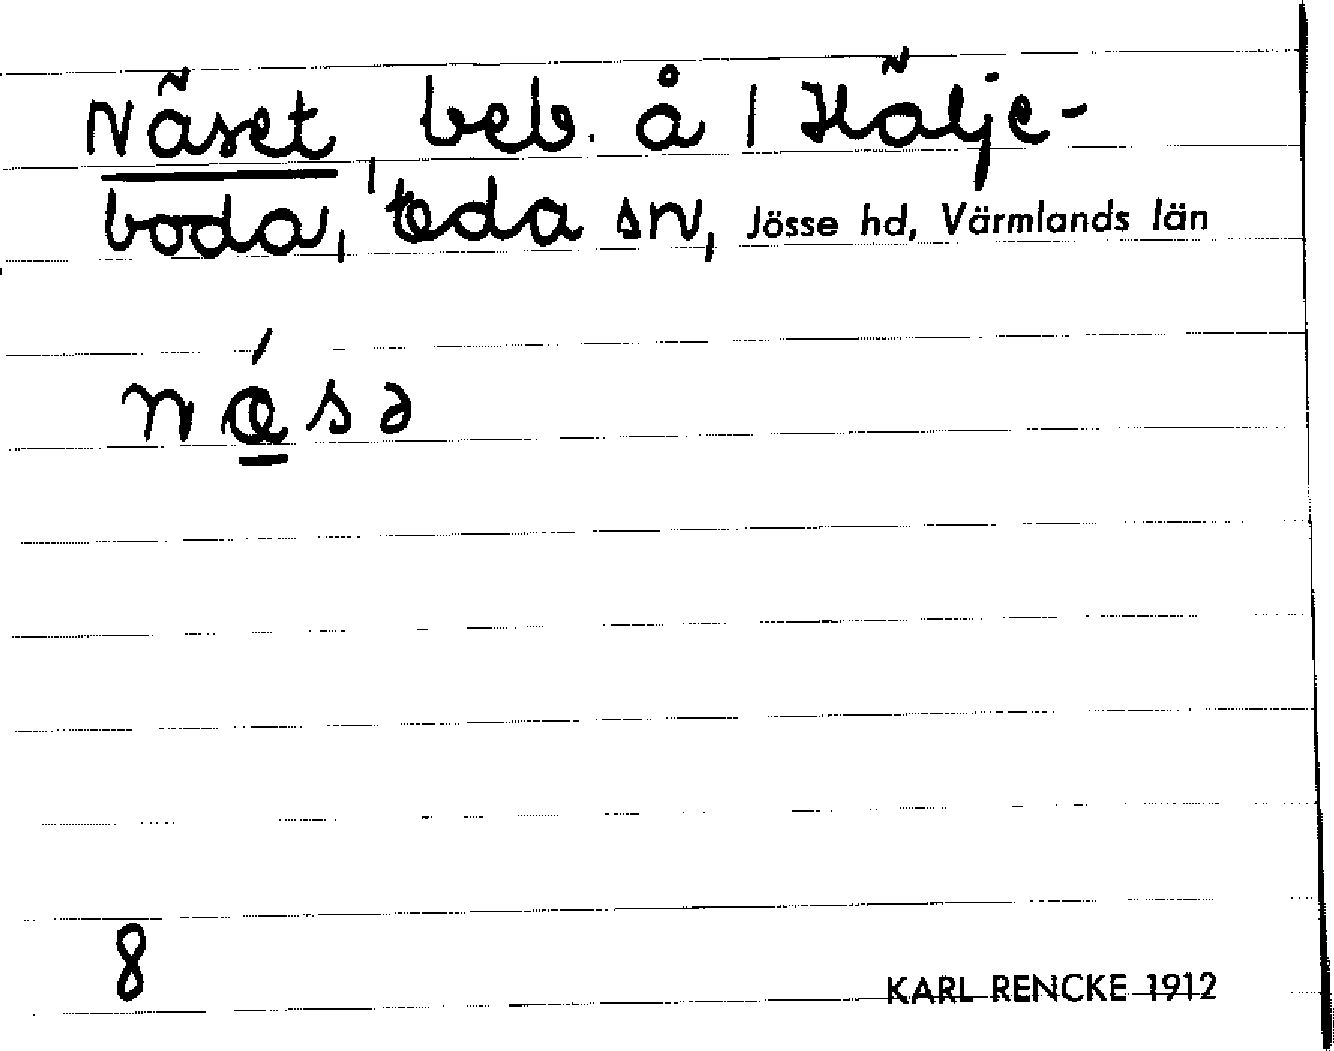 Näset, beb. å 1 Hälje-
boda, Eda sn, Jösse hd, Värmlands län
8
KARL RENCKE 1912